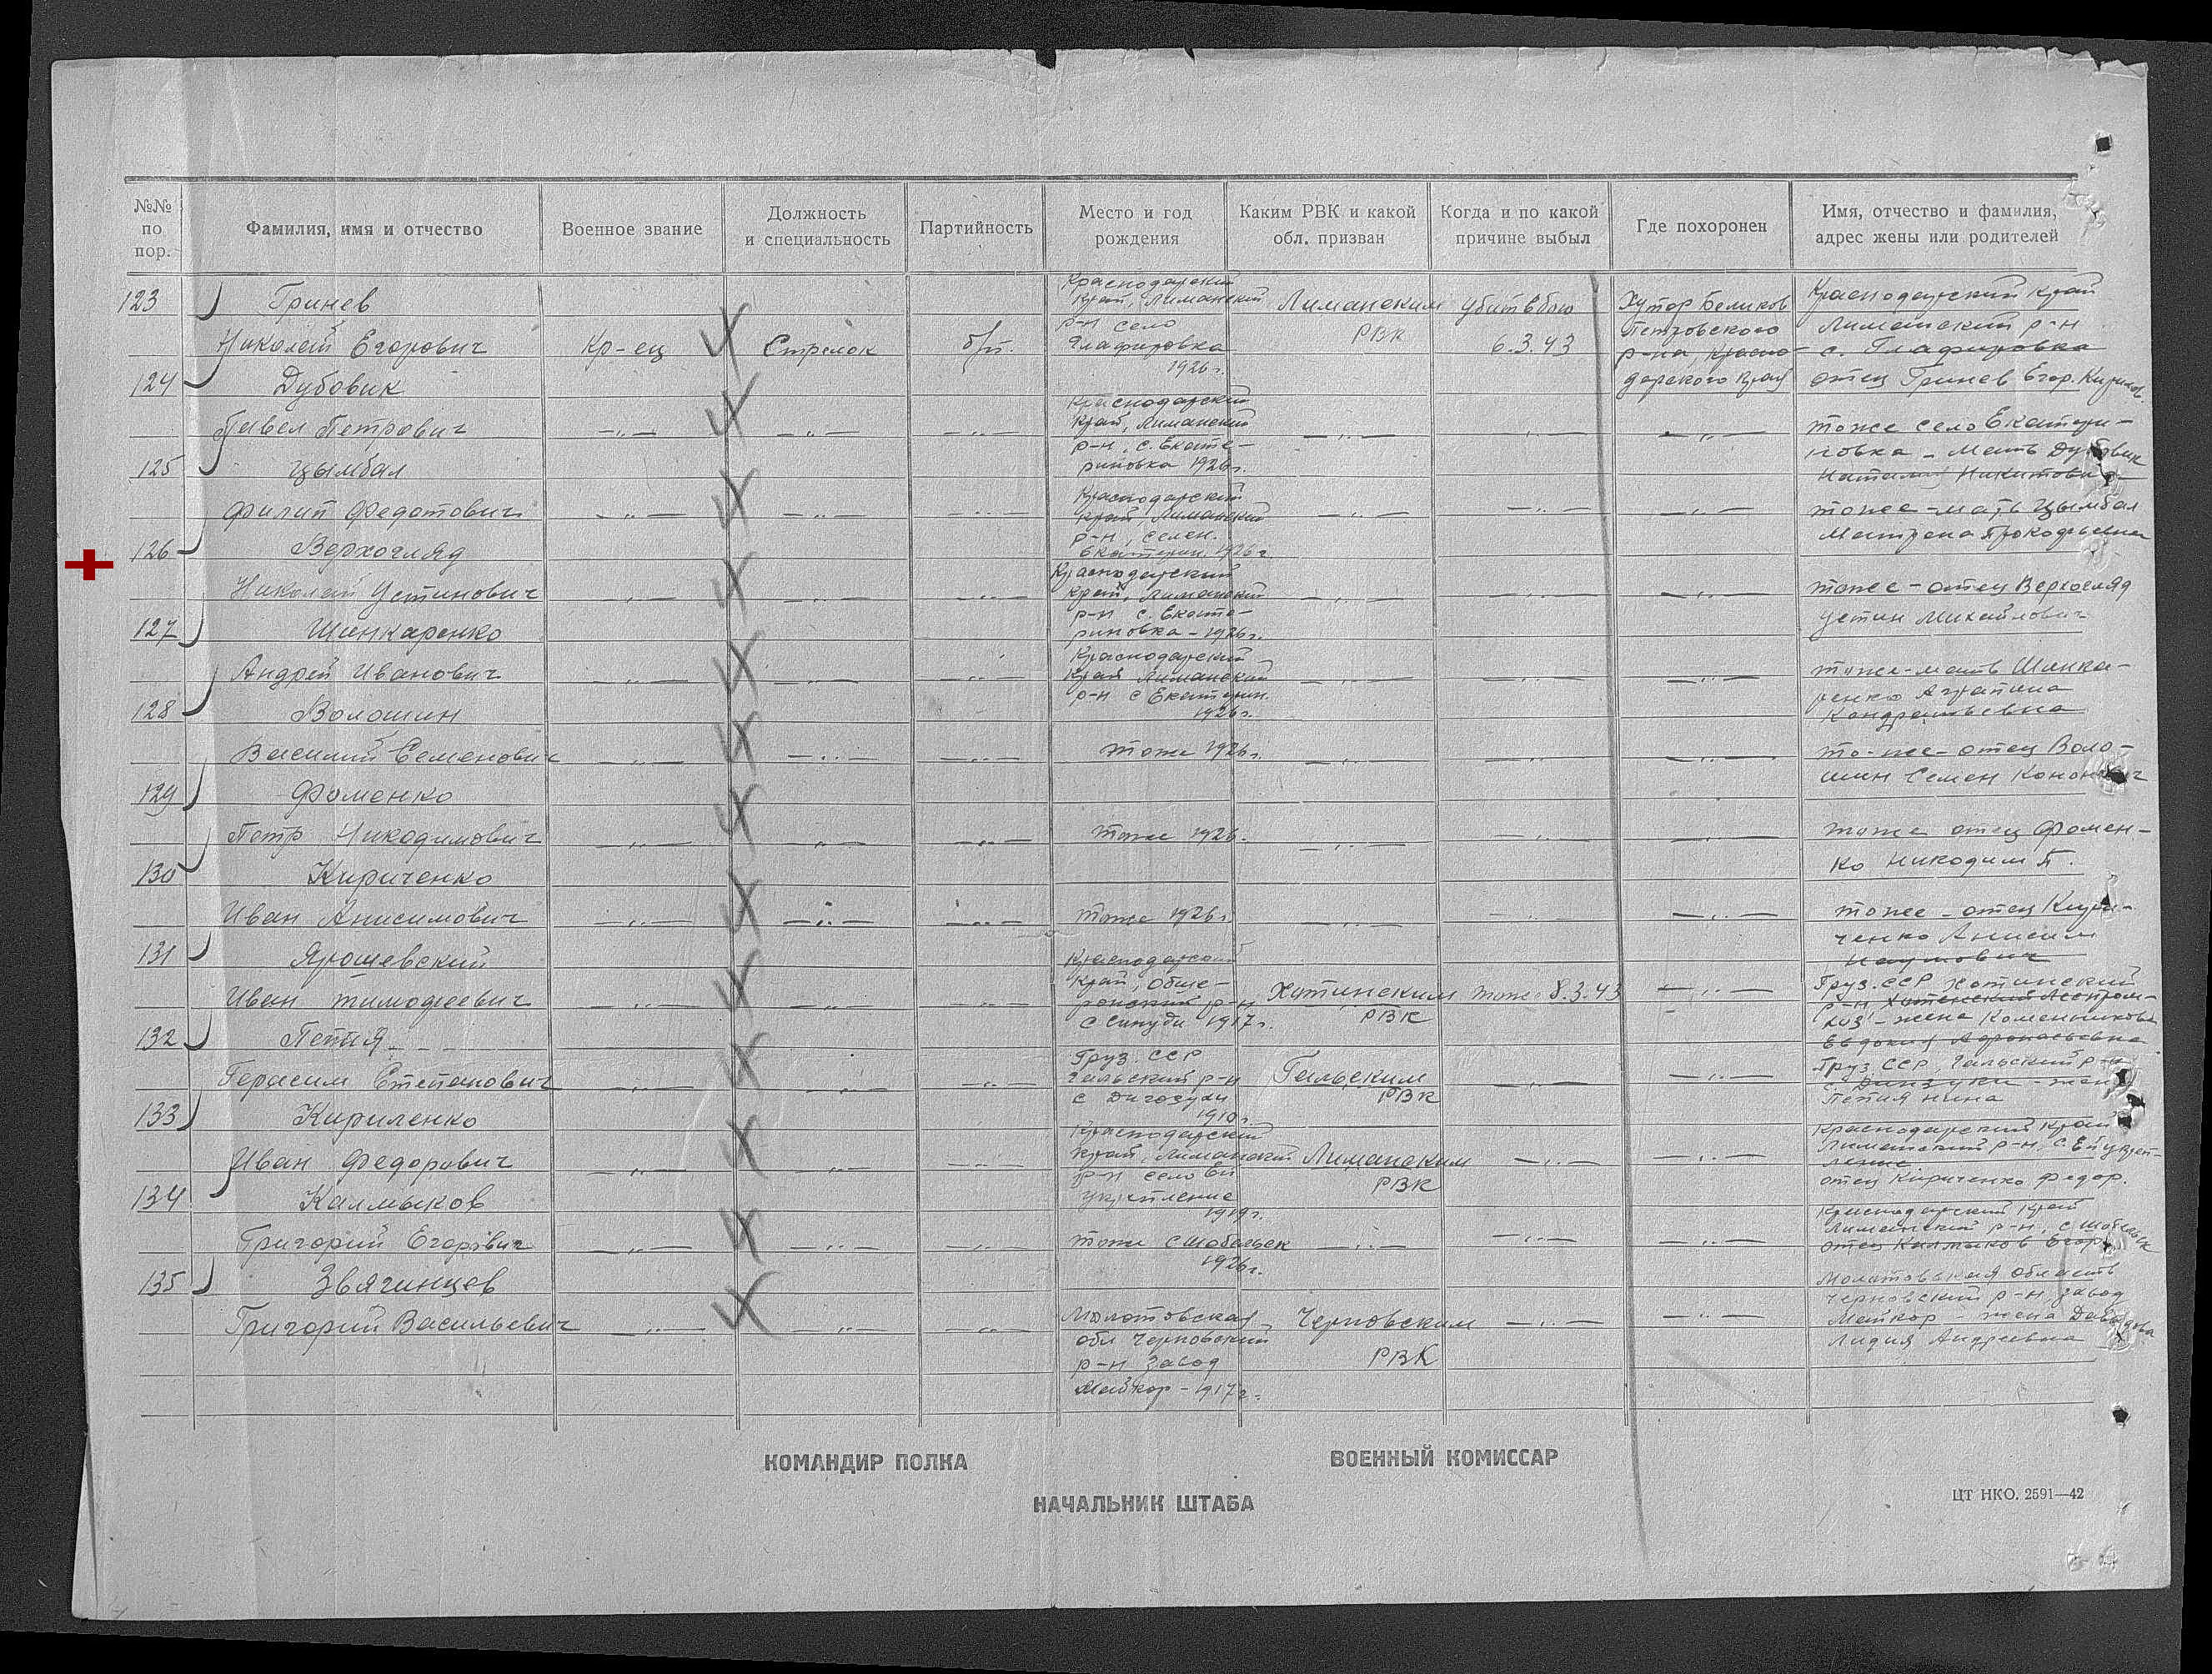 №№ по пор.
Фамилия, имя и отчество
Военное звание
Должность и специальность
Партийность
Место и год рождения
Каким РВК и какой обл. призван
Когда и по какой причине выбыл
Где похоронен
Имя, отчество и фамилия, адрес жены или родителей
123 Гринев
Николай Егорович
Кр-ец
Стрелок
б/п.
Краснодарский
край, Лиманский
р-н село
Глафировка
1926г.
Лиманским
РВК
убит в бою
6.3.43
Хутор Беликов
Петровского
р-на, Красно-
дарского края
Краснодарский край
Лиманский р-н
с. Глафировка
отец Гринев Егор.
124 Дубовик
Павел Петрович
—„—
—„—
—„—
Краснодарский
край, Лиманский
р-н, с. Екате-
риновка 1926г.
—„—
—„—
—„—
тоже село Екатери-
новка - мать Дубовик
Наталия
125 Цымбал
Филип Федотович
—„—
—„—
—„—
Краснодарский
край, Лиманский
р-н, селен.
Екатерин. 1926г.
—„—
—„—
—„—
тоже - мать Цымбал
Матрена Прокофьевна
126 Верхогляд
Николай Устинович
—„—
—„—
—„—
Краснодарский
край, Лиманский
р-н с. Екате-
риновка - 1926г.
—„—
—„—
—„—
тоже - отец Верхогляд
Устин Михайлович
127 Шинкаренко
Андрей Иванович
—„—
—„—
—„—
Краснодарский
край Лиманский
р-н с Екатерин.
1926г.
—„—
—„—
—„—
тоже - мать Шинка-
ренко Агрипина
Кондратьевна
128 Волошин
Василий Семенович
—„—
—„—
—„—
тоже 1926г.
—„—
—„—
—„—
то-же - отец Воло-
шин Семен
129 Фоменко
Петр Никодимович
—„—
—„—
—„—
тоже 1926.
—„—
—„—
—„—
тоже отец Фомен-
ко Никодим П.
130 Кириченко
Иван Анисимович
—„—
—„—
—„—
тоже 1926г
—„—
—„—
—„—
тоже - отец Кири-
ченко Анисим
Наумович
131 Ярошевский
Иван Тимофеевич
—„—
—„—
—„—
край,
р-н
1917г.
Хотинским
РВК
тоже 8.3.43
—„—
Груз.ССР Хотинский
р-н
- жена
132 Пепия
Герасим Степанович
—„—
—„—
—„—
Груз. ССР
Гальский р-н
с
1910г.
Гальским
РВК
—„—
—„—
Груз.ССР, Гальский р-н
с. - жена
Пепия Нина
133 Кириленко
Иван Федорович
—„—
—„—
—„—
Краснодарский
край, Лиманский
р-н село Ей
укрепление
1919г.
Лиманским
РВК
—„—
—„—
Краснодарский край
Лиманский р-н, с. Ейукреп-
ление
отец Кириченко Федор.
134 Калмыков
Григорий Егорович
—„—
—„—
—„—
тоже с Шабельск
1926г.
—„—
—„—
—„—
Краснодарский край
Лиманский р-н, с Шабельск
отец Калмыков Егор
135 Звягинцев
Григорий Васильевич
—„—
—„—
—„—
Молотовская
обл Черновский
р-н завод
Майкор - 1917г.
Черновским
РВК
—„—
—„—
Молотовская область
Черновский р-н, завод
Майкор - жена
Лидия Андреевна
КОМАНДИР ПОЛКА
ВОЕННЫЙ КОМИССАР
НАЧАЛЬНИК ШТАБА
ЦТ НКО. 2591—42